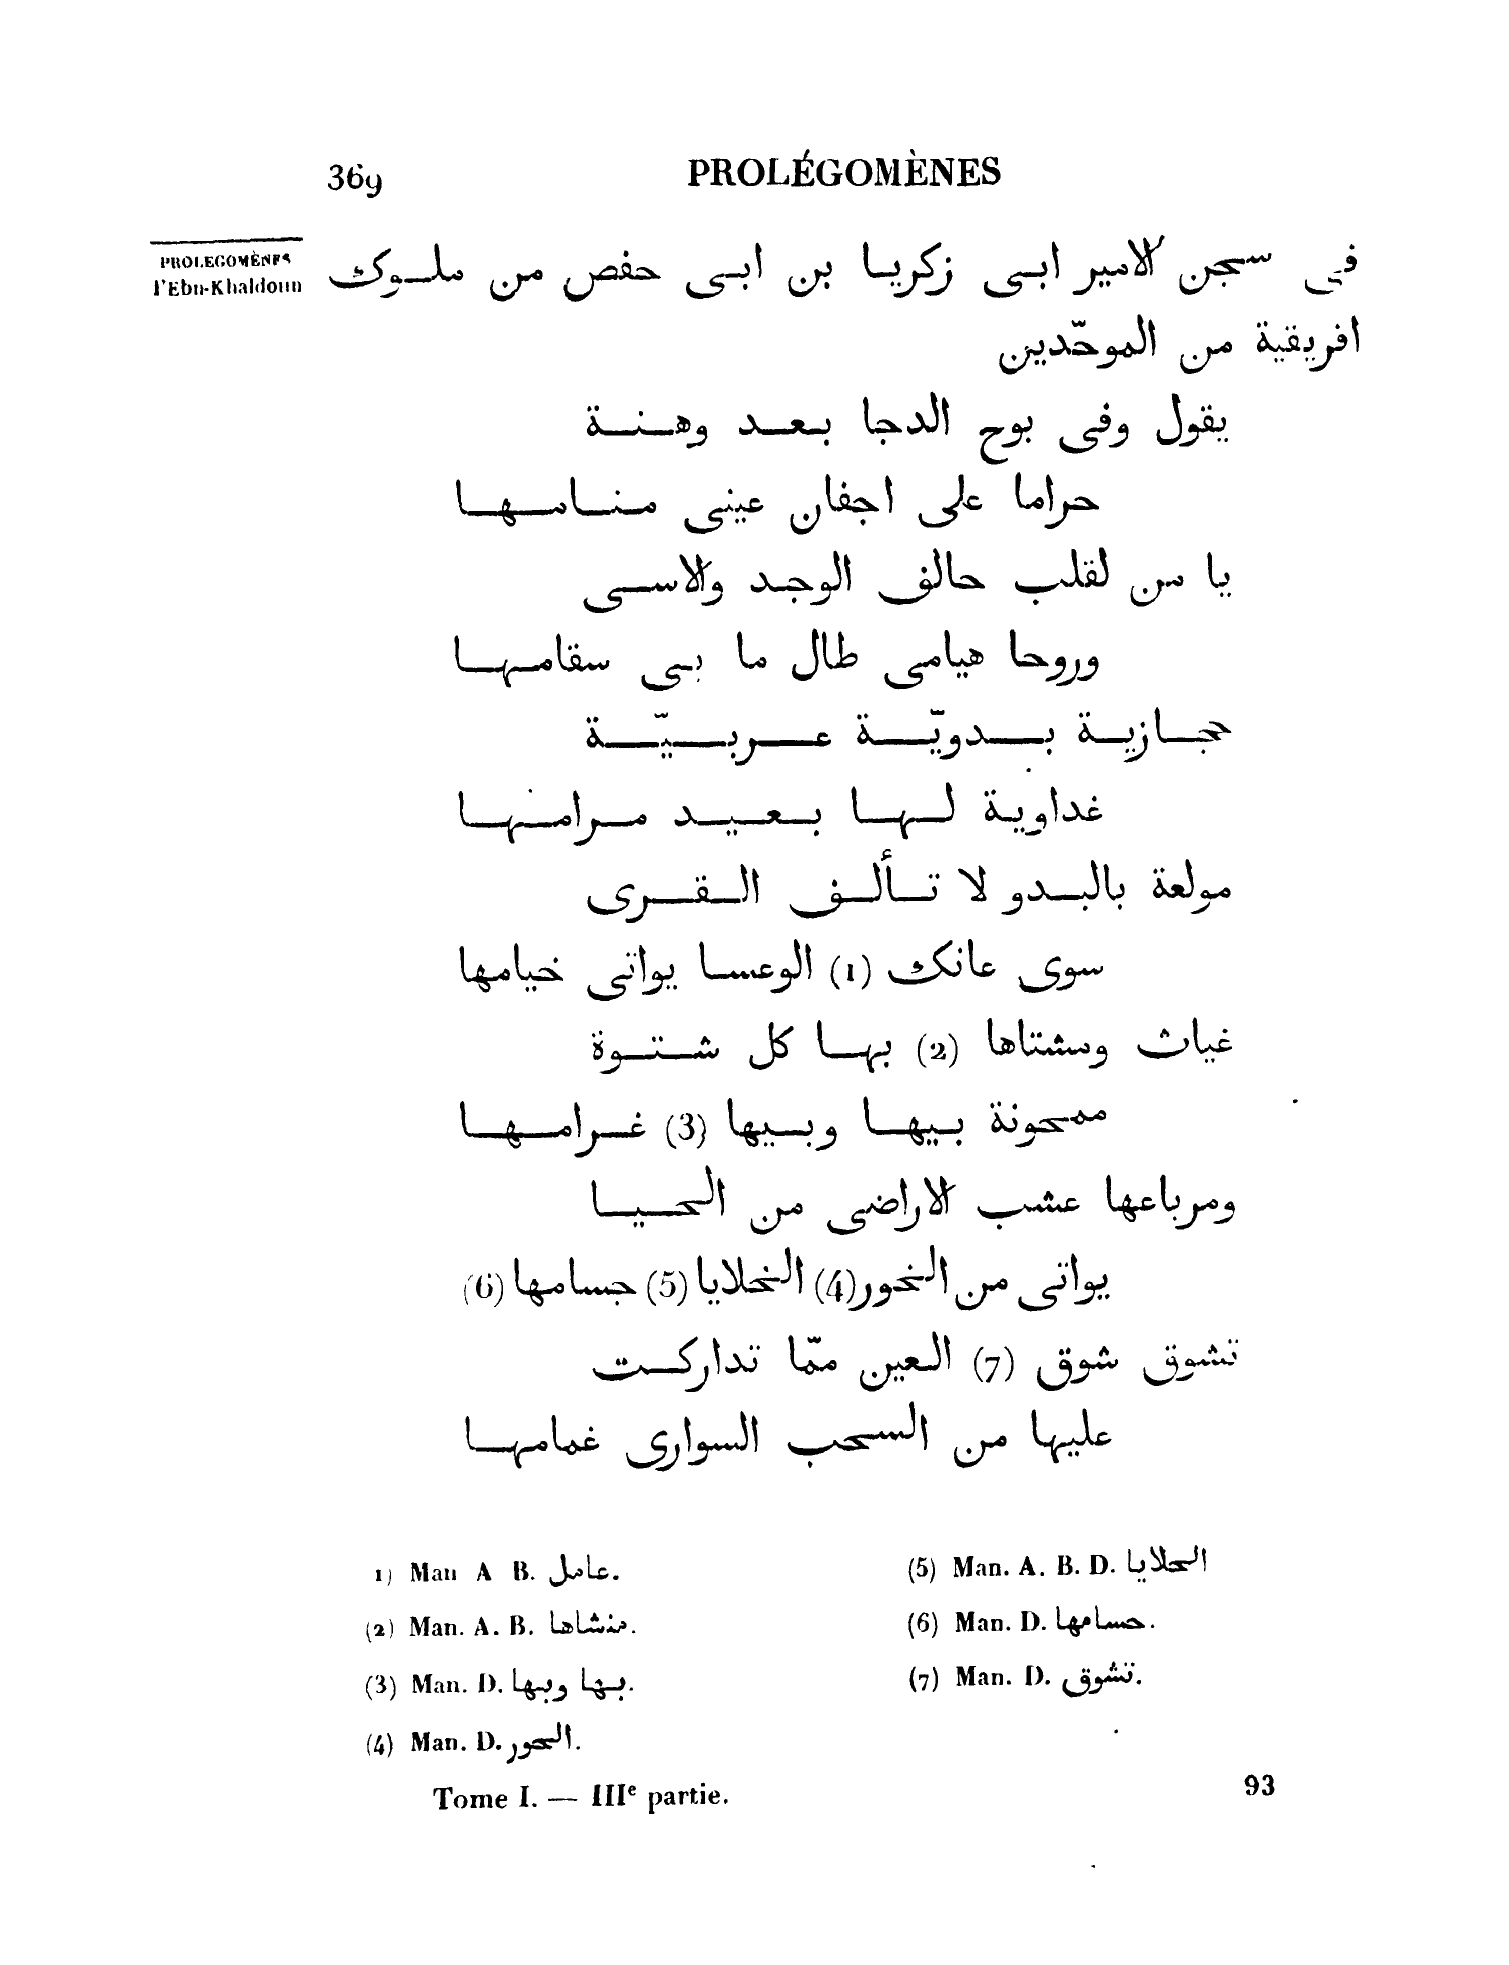 369
PROLÉGOMÈNES
PROLEGOMÈNES
d'Ebn-Khaldoun
فى سجن الامير ابى زكريا بن ابى حفص من ملوك
افريقية من الموحّدين
يقول وفى بوح الدجا بعد وهنة
حراما على اجفان عينى منامها
يا من لقلب حالف الوجد والاسى
وروحا هيامى طال ما بى سقامها
حجازية بدويّة عربيّة
غداوية لها بعيد مرامها
مولعة بالبدو لا تألف القرى
سوى عانك (1) الوعسا يواتى خيامها
غياث ومشتاها (2) بها كل شتوة
ممحونة بيها وبيها (3) غرامها
ومرباعها عشب الاراضى من الحيا
يواتى من الخور (4) الخلايا (5) جسامها (6)
تشوق شوق (7) العين ممّا تداركت
عليها من السحب السوارى غمامها
1) Man A B. عامل.
(2) Man. A. B. منشاها.
(3) Man. D. بها وبها.
(4) Man. D. الحور.
(5) Man. A. B. D. الحلايا
(6) Man. D. حسامها.
(7) Man. D. تشوق.
Tome I. — IIIe partie.
93